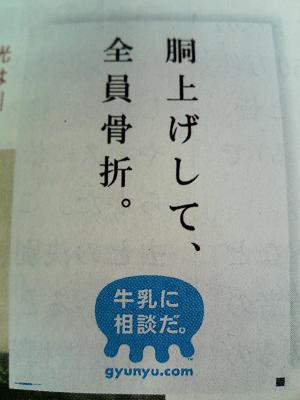 胴上げして、
全員骨折。
牛乳に
相談だ。
gyunyu.com